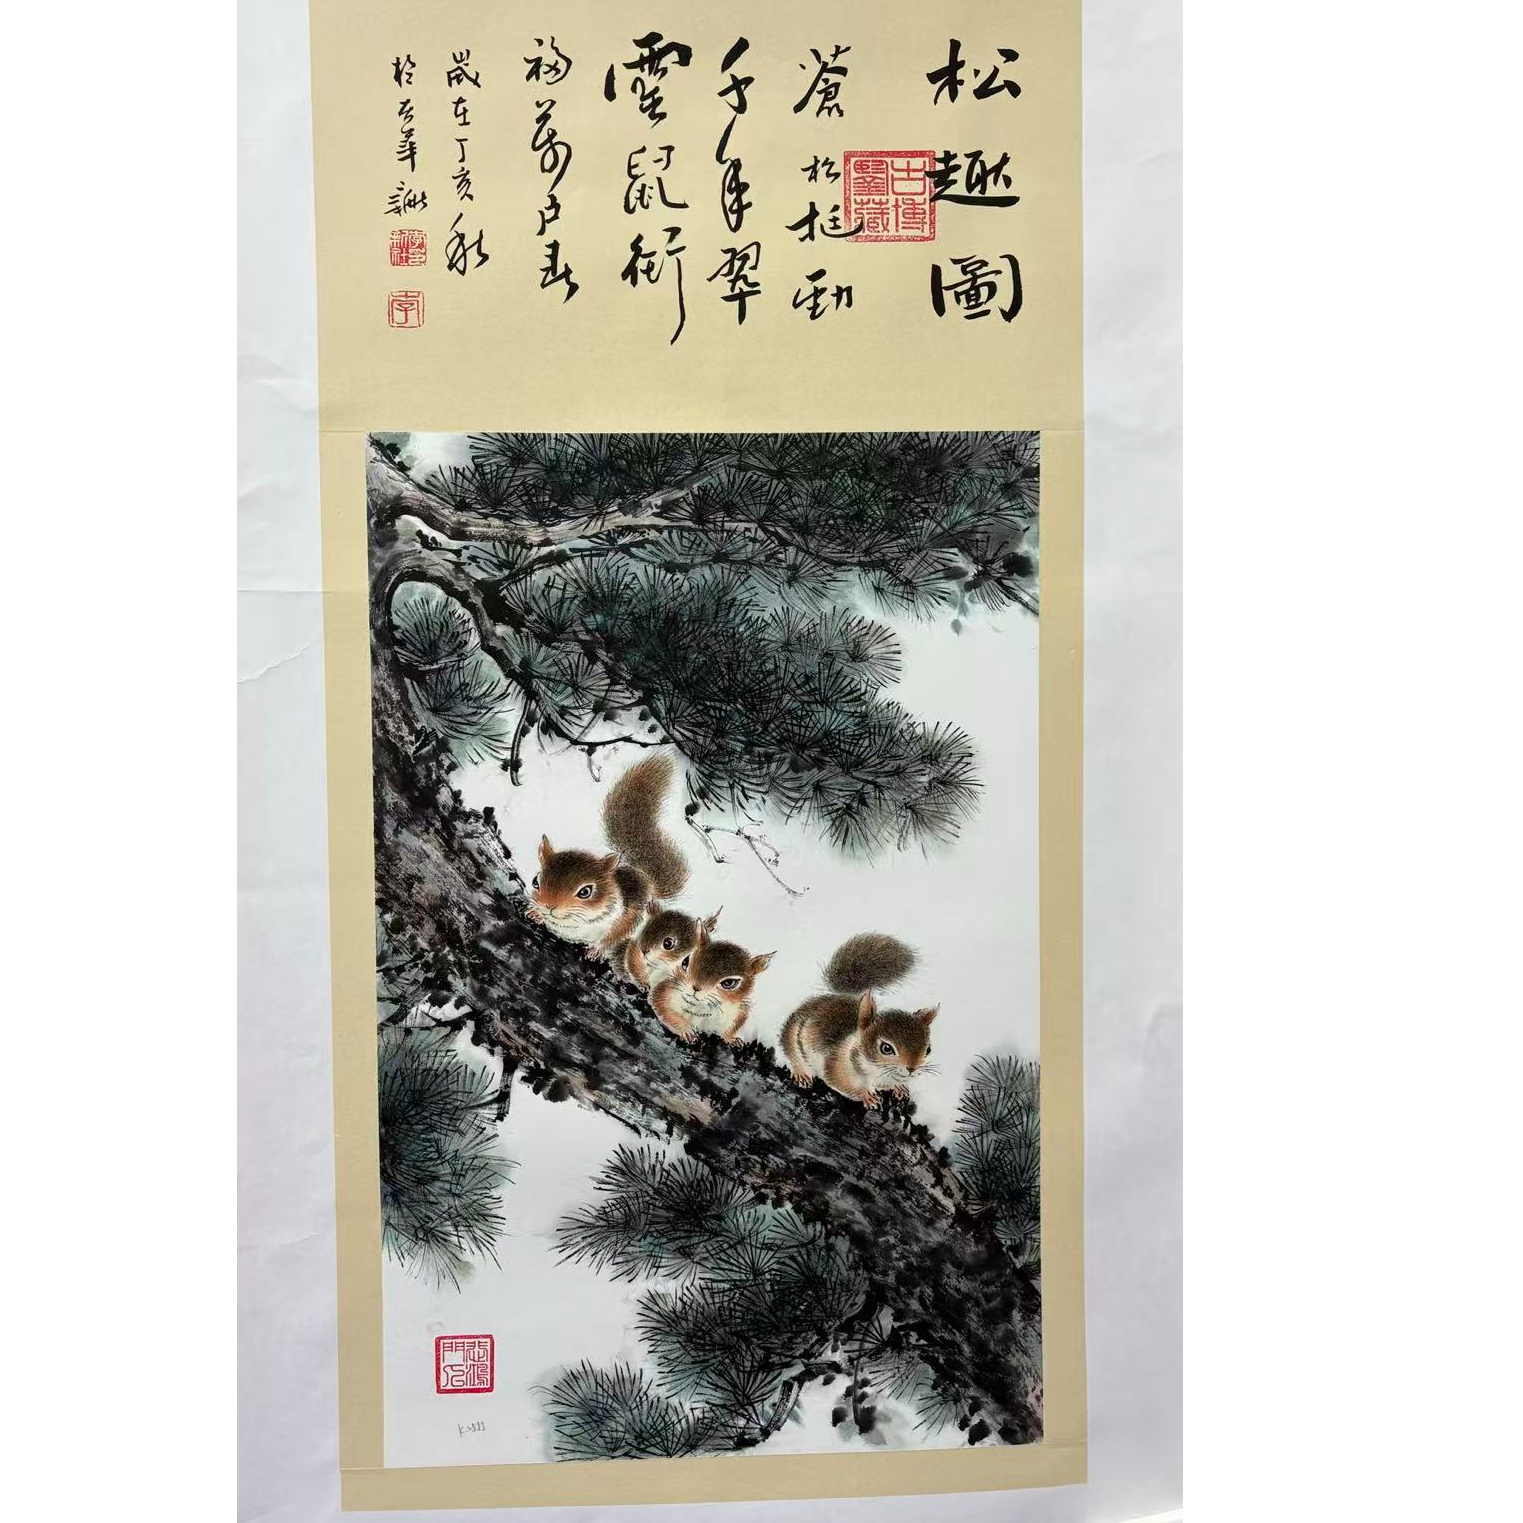 松趣圖
古博鑒藏
蒼松挺勁
千年翠
靈鼠銜
福萬戶春
歲在丁亥秋
於京華
李
悲鴻門人